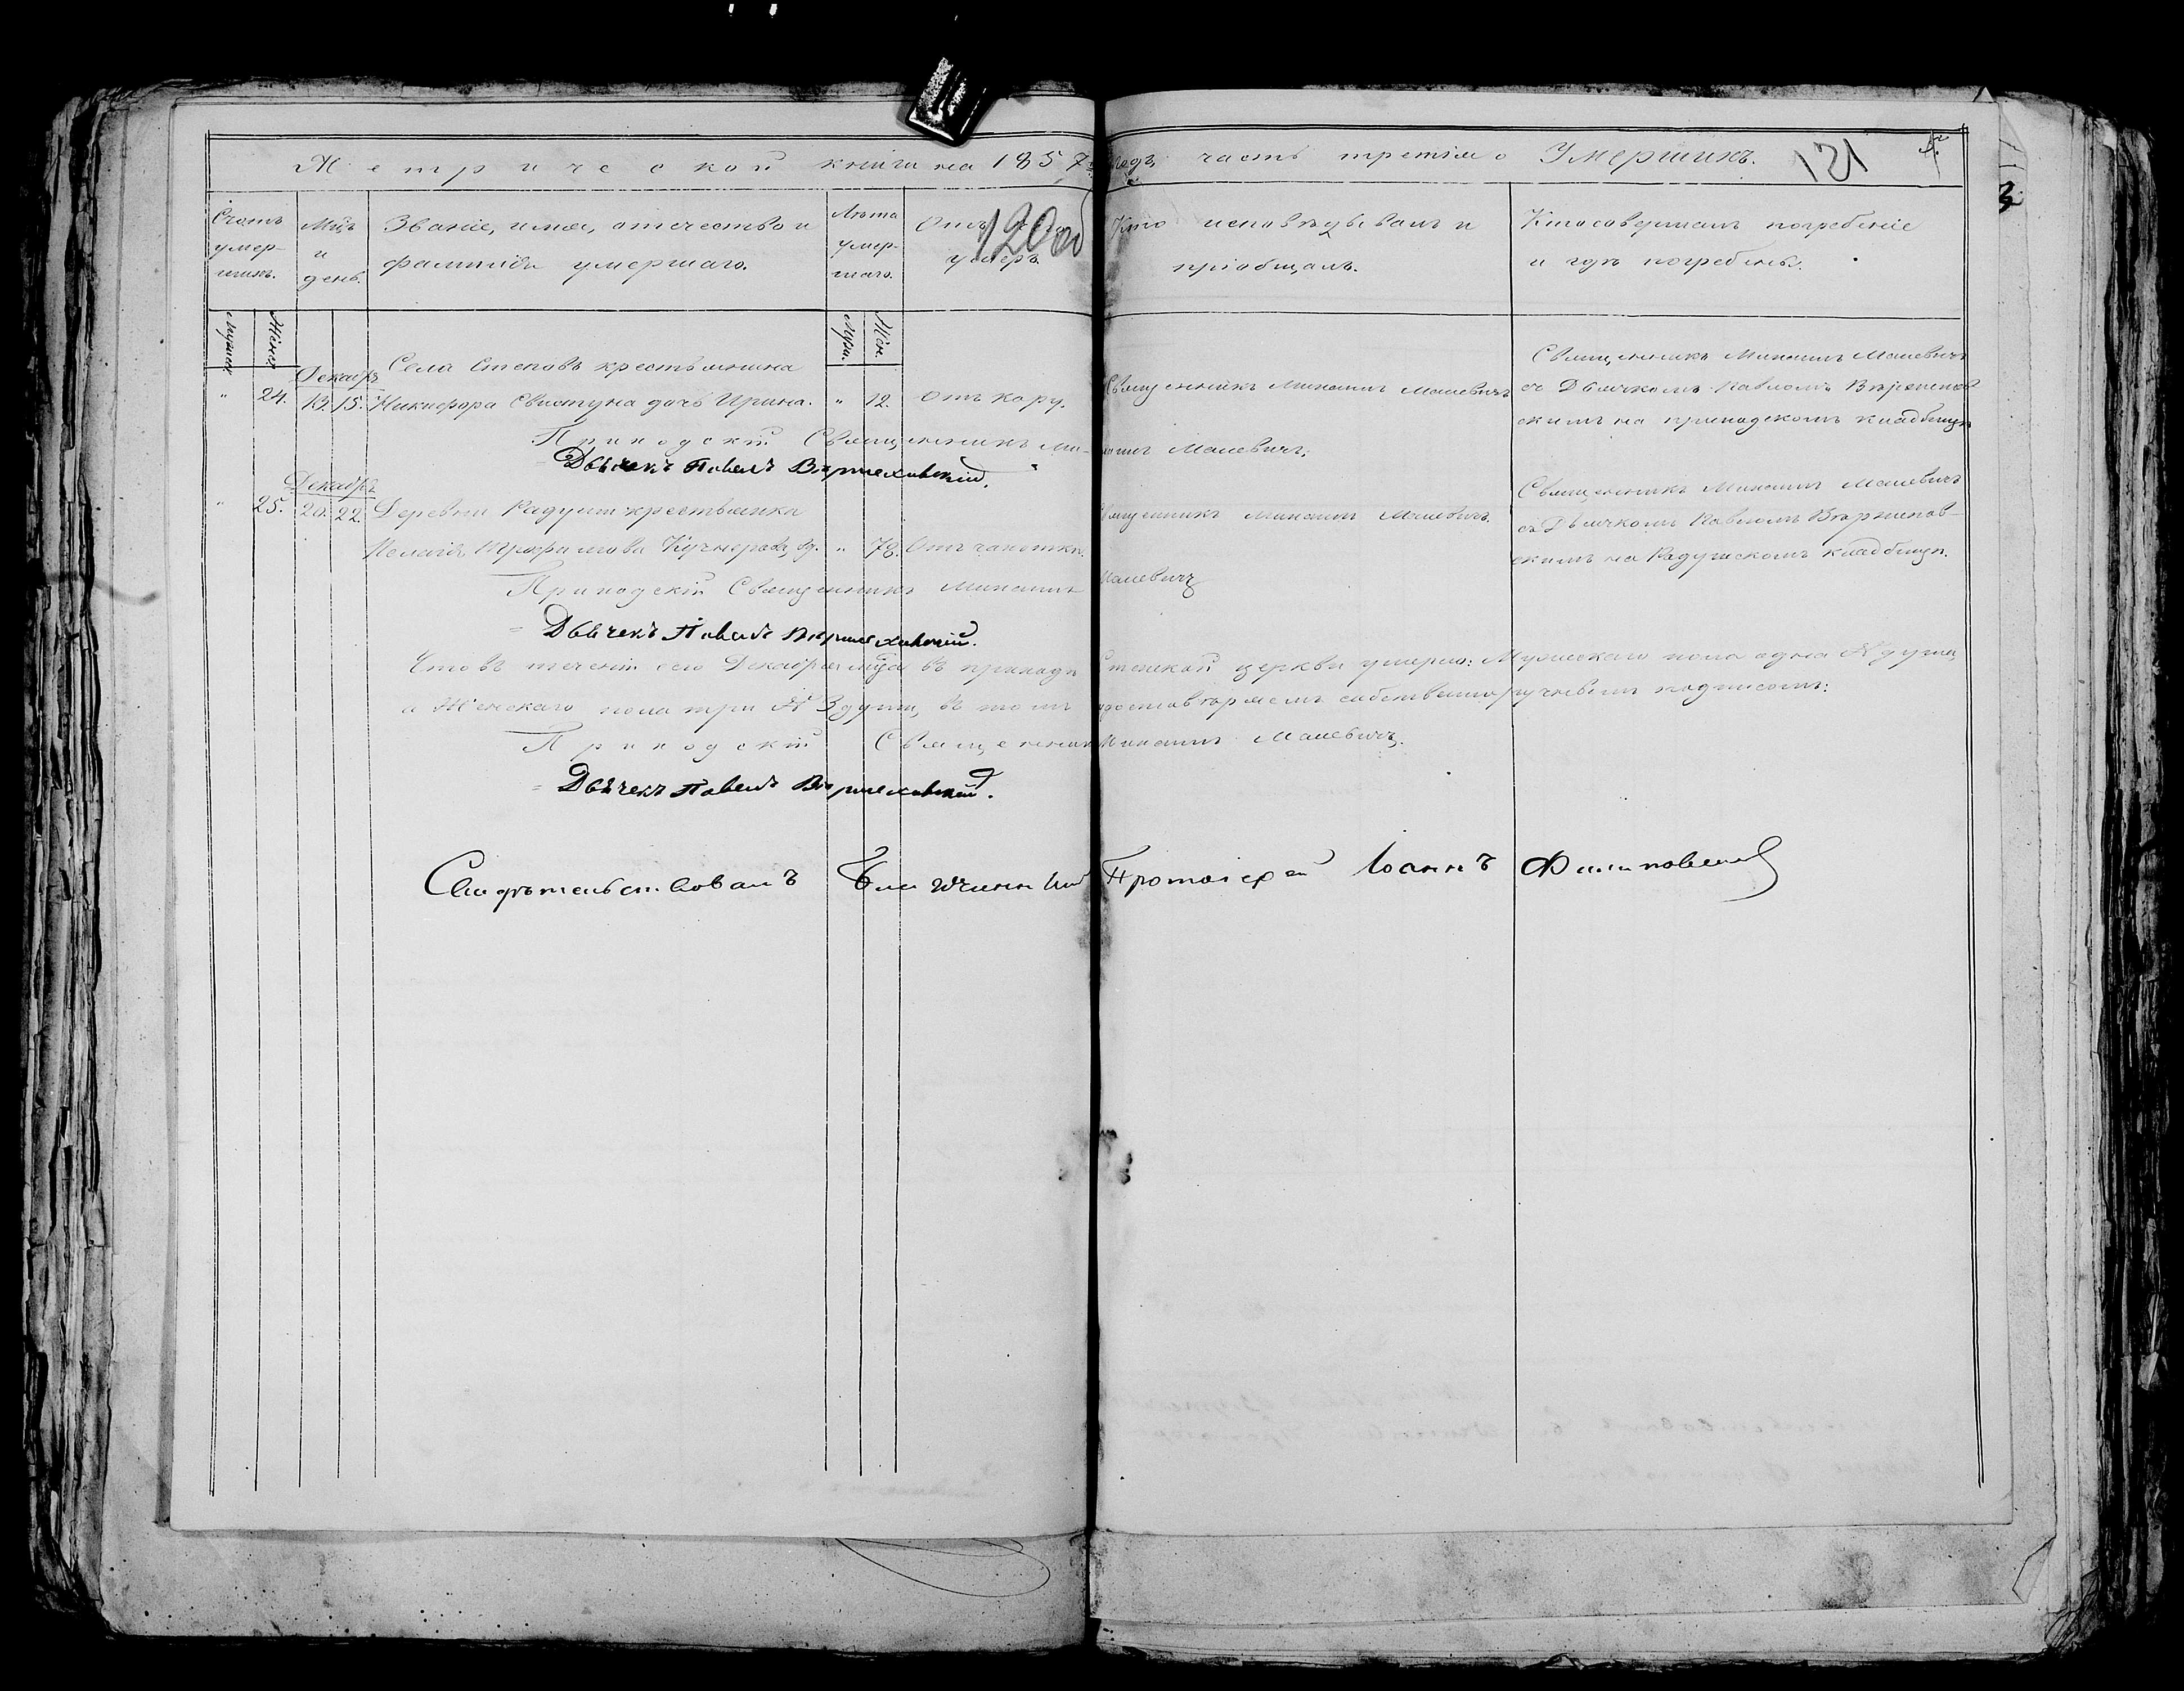 Метрической книги на 1857 годъ часть третія о Умершихъ.
121
120 об
Счетъ умер- шихъ.
Мцъ и день.
Званіе, имя, отчество и фамилія умершаго.
Лѣта умер- шаго.
Отъ чего умеръ.
Кто исповѣдывалъ и пріобщалъ.
Кто совершалъ погребеніе и гдѣ погребены.
Мужск. Женск.
Муж. Жен.
Декабрь
" 24. 13. 15. Села Степовъ крестьянина
Никифора Свистуна дочь Ирина. " 12. Отъ кору. Священникъ Михаилъ Малевичъ
Священникъ Михаилъ Малевичъ
съ Дьячкомъ Павломъ
скимъ на приходскомъ кладбищѣ
Приходскій Священникъ Михаилъ Малевичъ.
Дьячекъ Павелъ
Декабрь
" 25. 20. 22. Деревни Радушъ крестьянка
Пелагія Трофимова " 78. Отъ чахотки. Священникъ Михаилъ Малевичъ.
Священникъ Михаилъ Малевичъ
съ Дьячкомъ Павломъ
скимъ на кладбищѣ.
Приходскій Священникъ Михаилъ Малевичъ
Дьячекъ Павелъ
Что въ теченіи сего Декабря мца въ приходѣ церкви умерло: Мужескаго пола одна душа,
а Женскаго пола три 3 души, въ томъ удостовѣряемъ собственноручнымъ подписомъ:
Приходскій Священникъ Михаилъ Малевичъ.
Дьячекъ Павелъ
Свидѣтельствовалъ Благочинный Протоіерей Іоаннъ